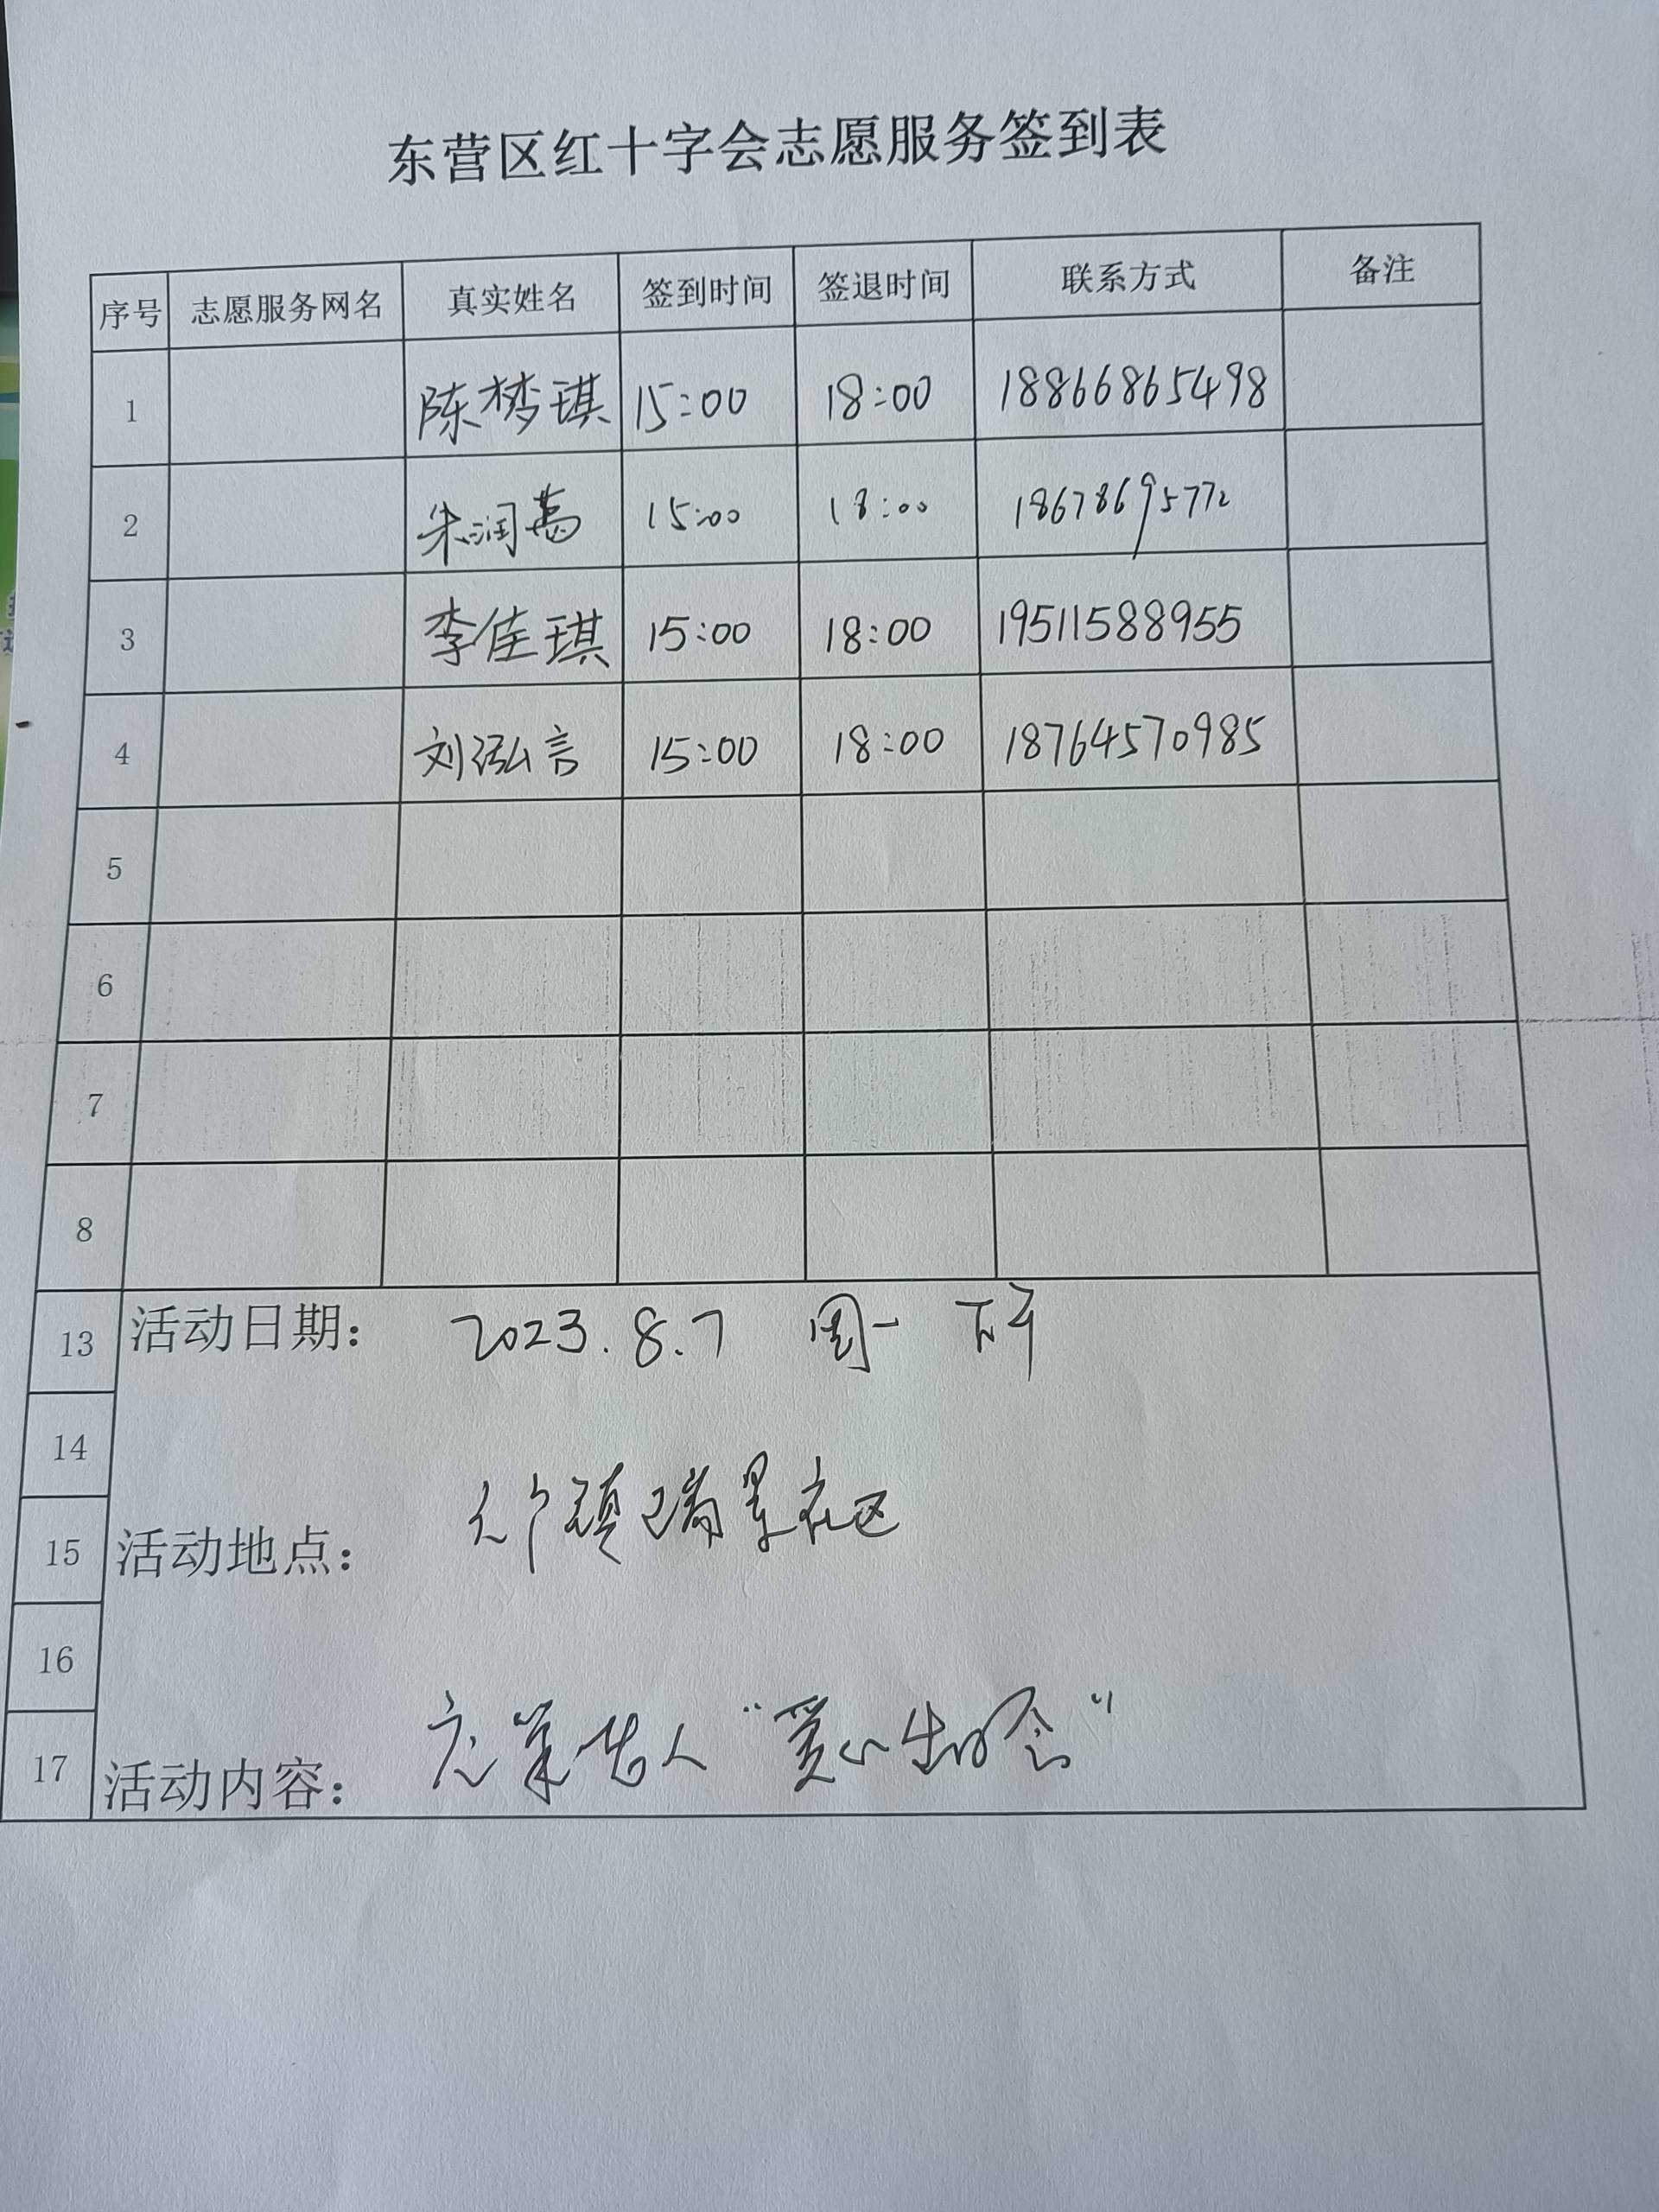 东营区红十字会志愿服务签到表
序号 志愿服务网名 真实姓名 签到时间 签退时间 联系方式 备注
1 陈梦琪 15:00 18:00 18866865498
2 朱润 15:00 18:00 18678695772
3 李佳琪 15:00 18:00 19511588955
4 刘泓言 15:00 18:00 18764570985
5
6
7
8
13 活动日期: 2023.8.7 周一 下午
14
15 活动地点: 镇瑞景社区
16
17 活动内容: 老人“爱心生日会”